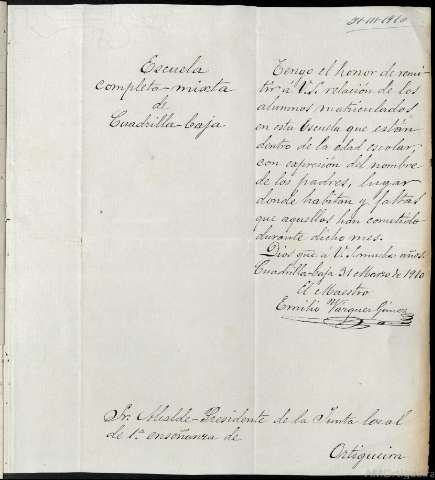 31-III-1910
Escuela
completa-mixta
de
Cuadrilla-baja
Tengo el honor de remi-
tir á V.S. relación de los
alumnos matriculados
en esta Escuela que están
dentro de la edad escolar;
con expresión del nombre
de los padres, lugar
donde habitan y faltas
que aquellos han cometido
durante dicho mes.
Dios que á V.S. muchs. años.
Cuadrilla-baja 31 Marzo de 1910
El Maestro
Emilio Vázquez Gómez
Sr. Alcalde-Presidente de la Junta local
de 1ª enseñanza de
Ortigueira